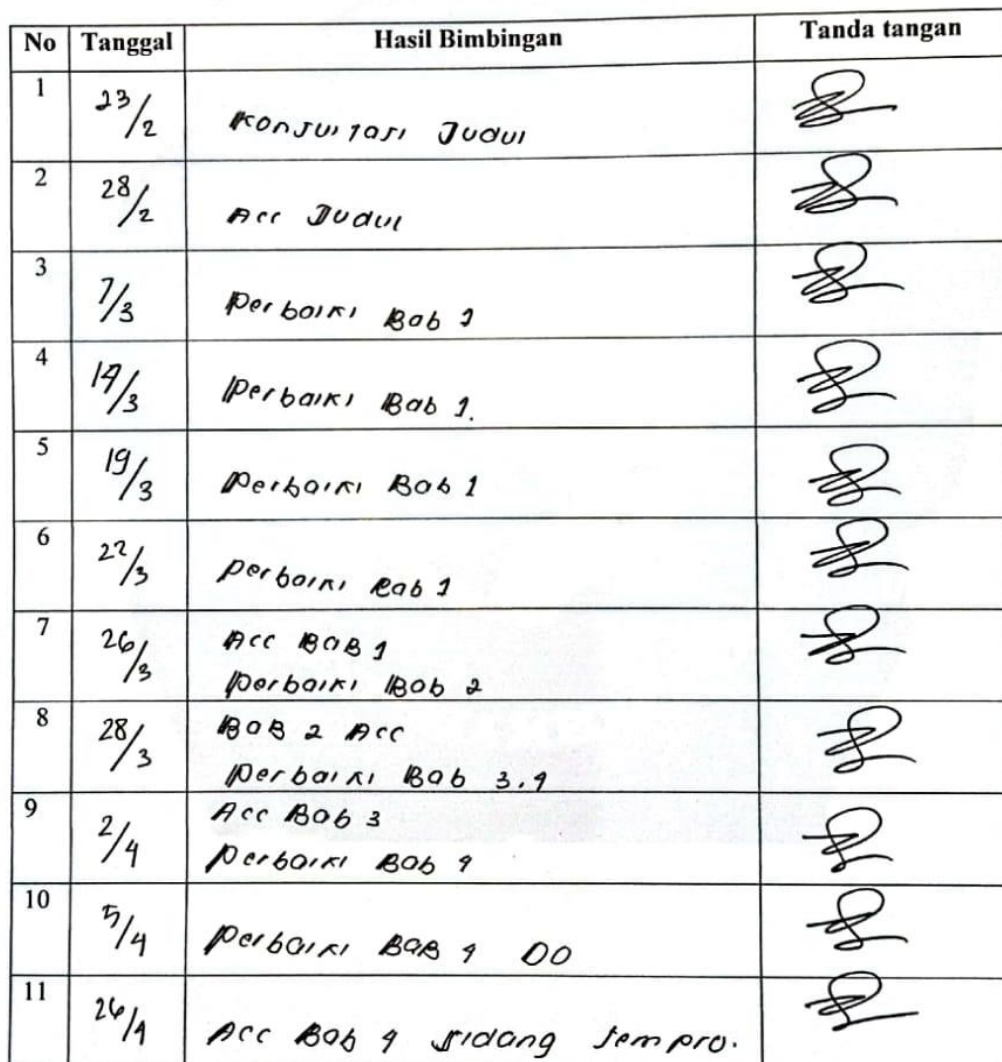 No Tanggal Hasil Bimbingan Tanda tangan
1 23/2 Konsultasi Judul
2 28/2 Acc Judul
3 7/3 Perbaiki Bab 1
4 14/3 Perbaiki Bab 1.
5 19/3 Perbaiki Bab 1
6 22/3 perbaiki Bab 1
7 26/3 Acc BAB 1
Perbaiki Bab 2
8 28/3 BAB 2 Acc
Perbaiki Bab 3.4
9 2/4 Acc Bab 3
Perbaiki Bab 4
10 5/4 Perbaiki BAB 4 DO
11 26/4 Acc Bab 4 sidang sempro.